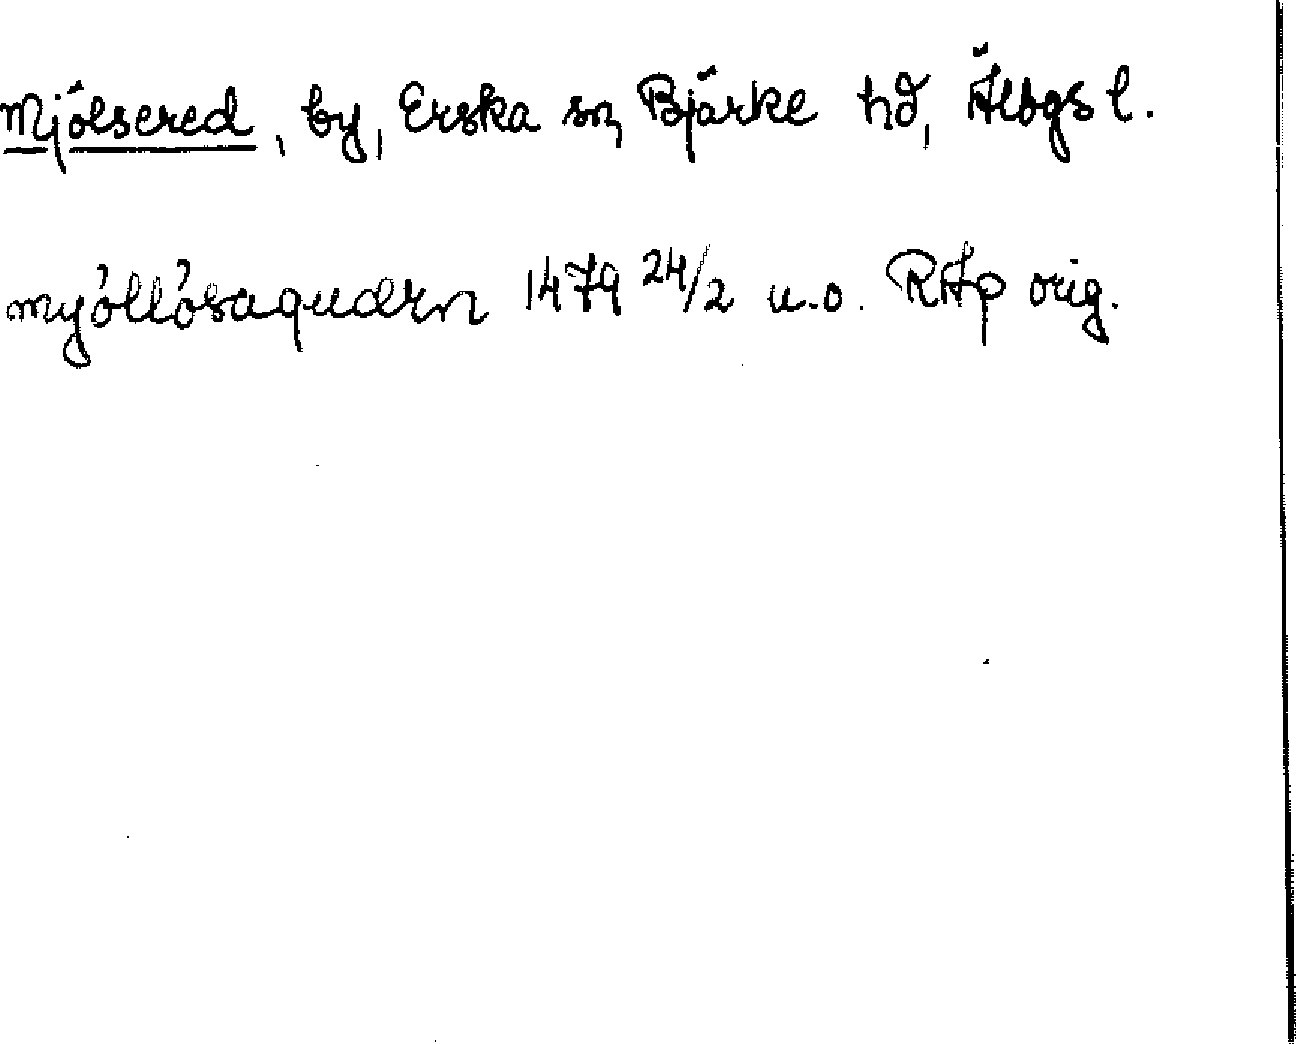 Mjölsered, by, Erska sn, Bjärke hd, Älvbgs l.
myöllösaquærn 1479 24/2 u.o. RAp orig.